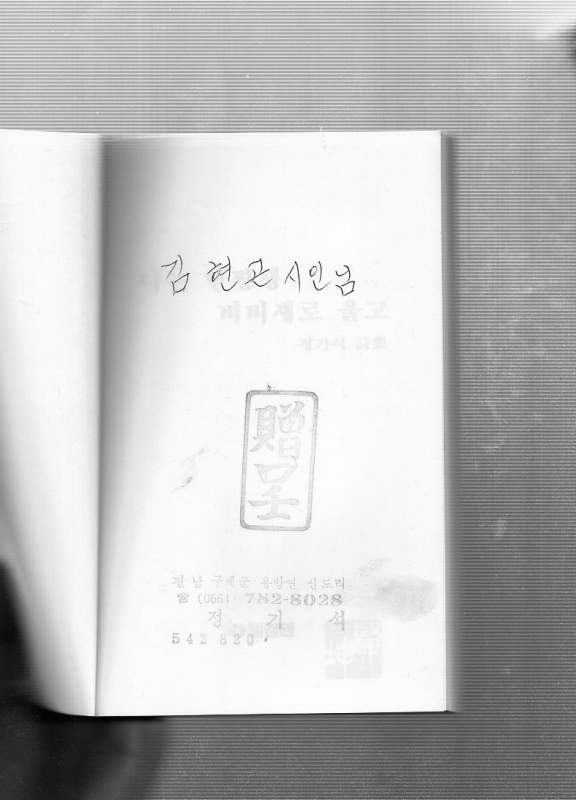 김 현곤 시인님
비비새로 울고
정기석 詩集
贈呈
전남 구례군 용방면 신도리
☎ (0661) 782-8028
정 기 석
542 820